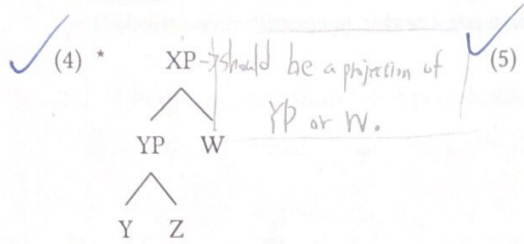 (4) * XP → should be a projection of (5)
YP or W.
YP W
Y Z